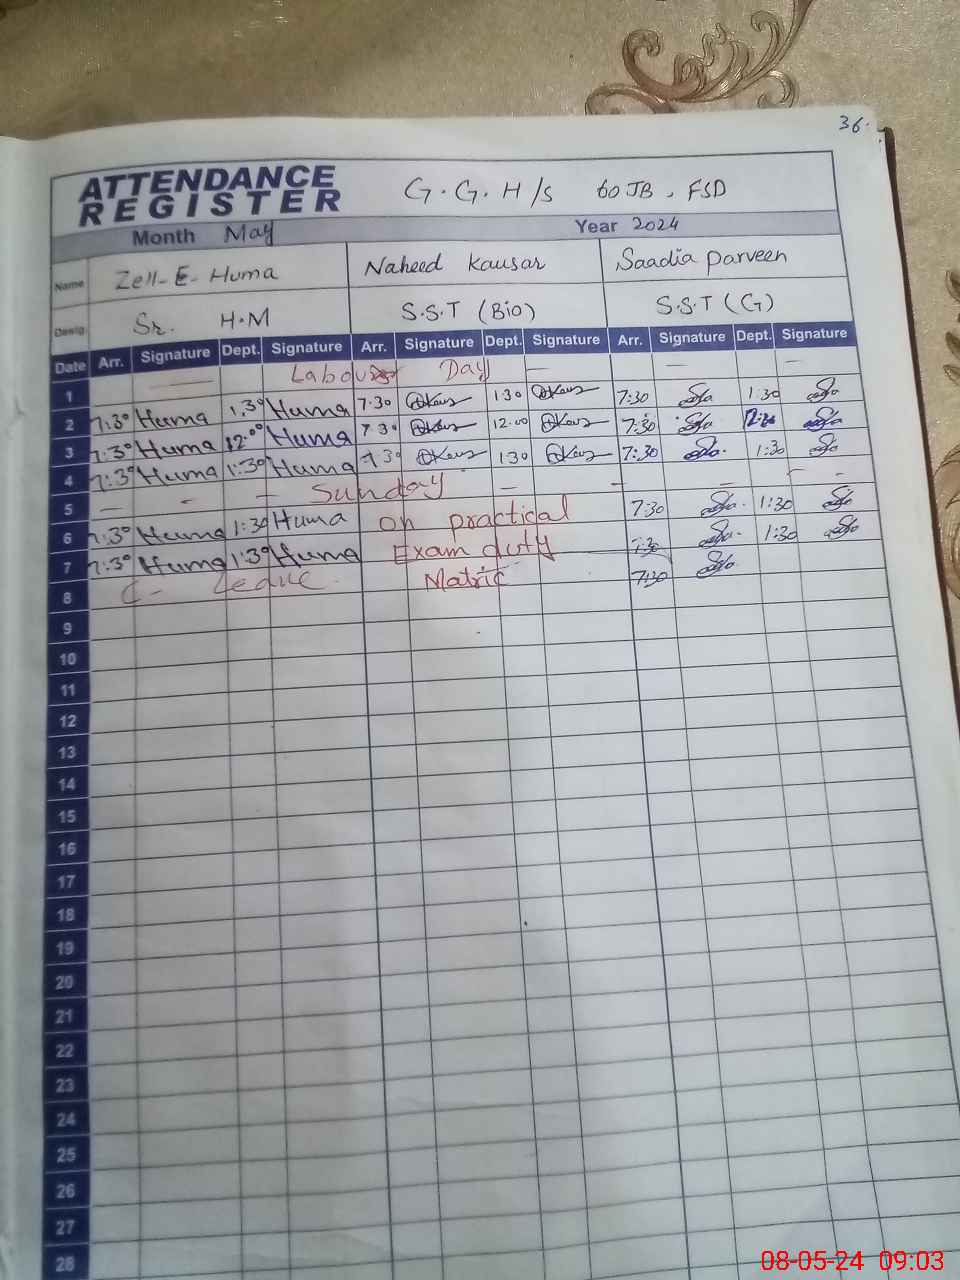 36.
ATTENDANCE REGISTER G.G.H/S 60 JB, FSD
Month May Year 2024
Name Zell-E-Huma Naheed Kausar Saadia Parveen
Desig. Sr. H.M S.S.T (Bio) S.S.T (G)
Date Arr. Signature Dept. Signature Arr. Signature Dept. Signature Arr. Signature Dept. Signature
1 — Labour Day — — —
2 7:30 Huma 1:30 Huma 7:30 1:30 7:30 1:30
3 7:30 Huma 12:00 Huma 7:30 12:00 7:30
4 7:30 Huma 1:30 Huma 7:30 1:30 7:30 1:30
5 — - — Sunday — — — - -
6 7:30 Huma 1:30 Huma on practical 7:30 1:30
7 7:30 Huma 1:30 Huma Exam duty 7:30 1:30
8 C- Leave Matric 7:30
9
10
11
12
13
14
15
16
17
18
19
20
21
22
23
24
25
26
27
28
08-05-24 09:03